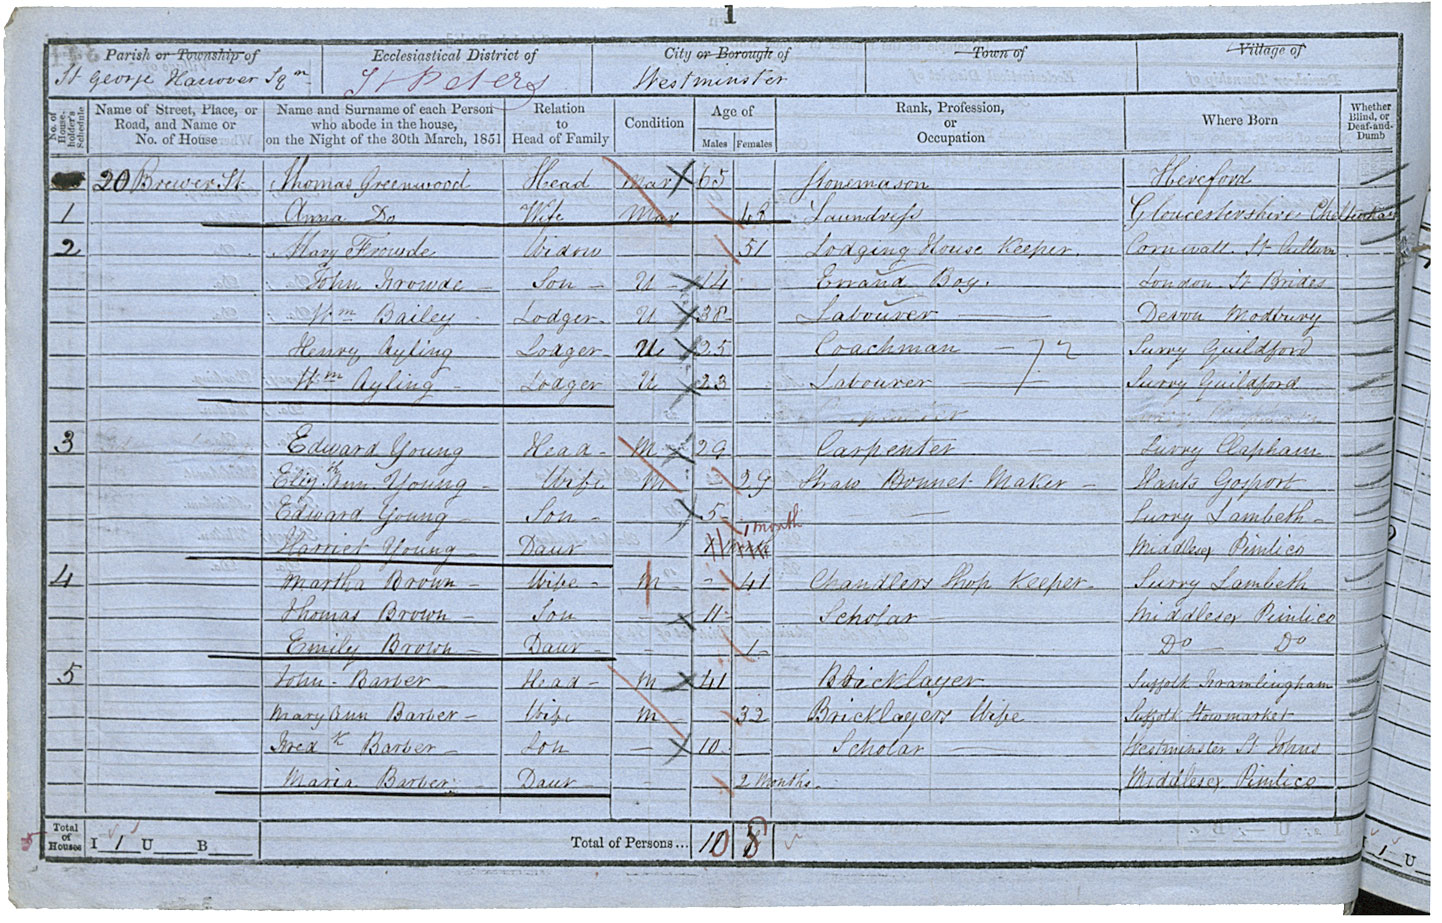 1
Parish or Township of Ecclesiastical District of City or Borough of Town of Village of
St George Hanover Sqr St Peters Westminster
No. of House-holder's Schedule Name of Street, Place, or Road, and Name or No. of House Name and Surname of each Person who abode in the house, on the Night of the 30th March, 1851 Relation to Head of Family Condition Age of Males Females Rank, Profession, or Occupation Where Born Whether Blind, or Deaf-and-Dumb
20 Brewer St Thomas Greenwood Head Mar 65 Stonemason Hereford
1 Anna Do Wife Mar 48 Laundress Gloucestershire Cheltenham
2 Mary Frowde Widow 51 Lodging House Keeper Cornwall St
John Frowde Son U 14 Errand Boy London St Brides
Wm Bailey Lodger U 38 Labourer Devon Modbury
Henry Ayling Lodger U 25 Coachman Surry Guildford
Wm Ayling Lodger U 23 Labourer Surry Guildford
3 Edward Young Head M 29 Carpenter Surry Clapham
Elizth Ann Young Wife M 29 Straw Bonnet Maker Hants Gosport
Edward Young Son 5 Surry Lambeth
Harriet Young Daur 1 month Middlesex Pimlico
4 Martha Brown Wife M 41 Chandlers Shop Keeper Surry Lambeth
Thomas Brown Son 11 Scholar Middlesex Pimlico
Emily Brown Daur 1 Do Do
5 John Barber Head M 41 Bricklayer Suffolk Framlingham
Mary Ann Barber Wife M 32 Bricklayers Wife Suffolk Stowmarket
Fredk Barber Son 10 Scholar Westminster St Johns
Maria Barber Daur 2 Months Middlesex Pimlico
Total of Houses I 1 U B Total of Persons... 10 8
1 U